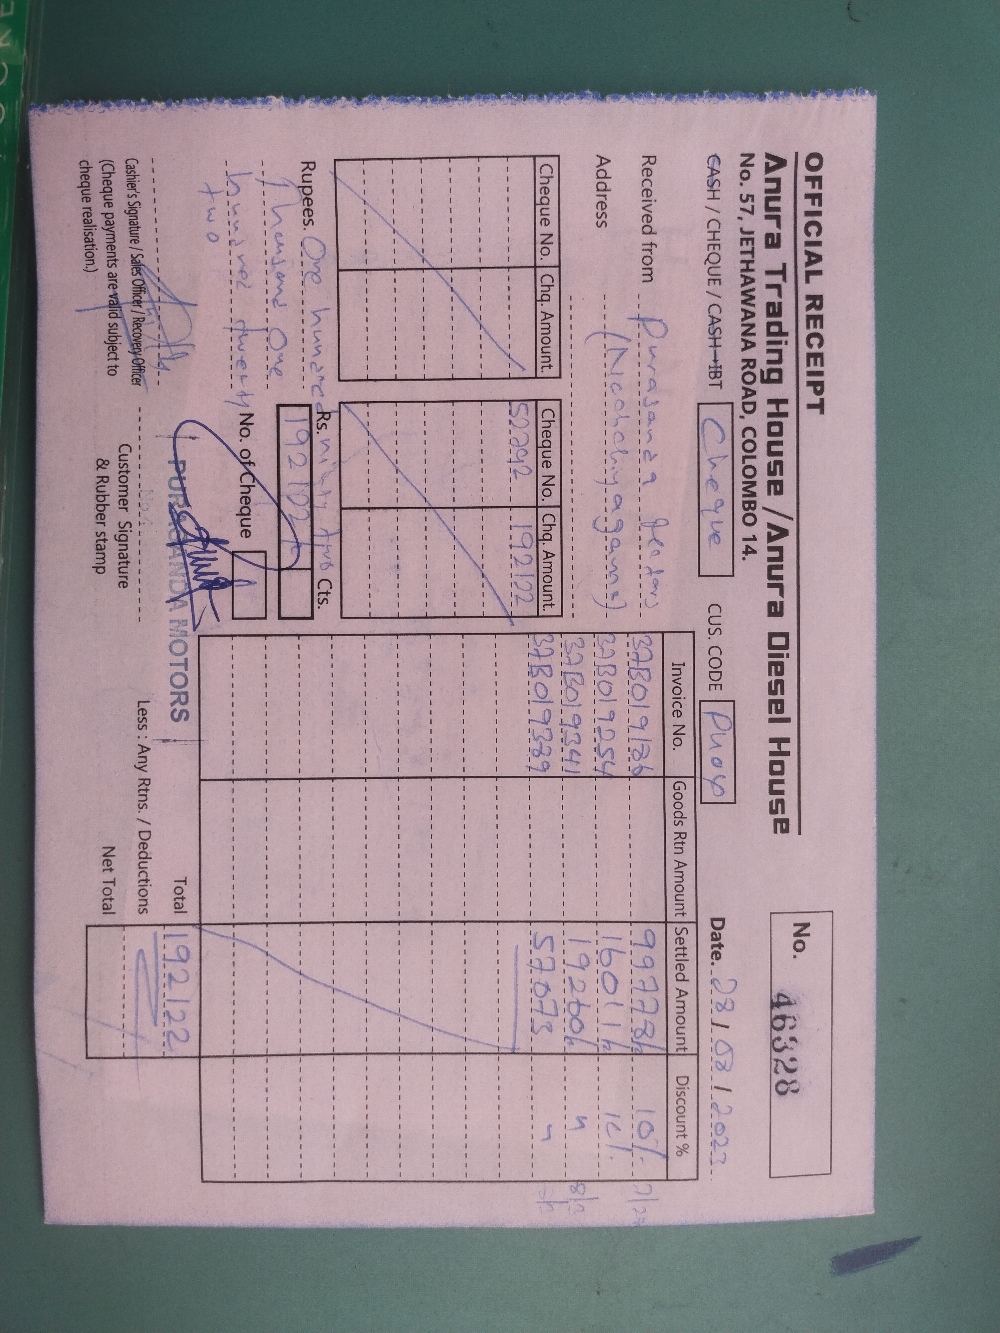 OFFICIAL RECEIPT
Anura Trading House / Anura Diesel House
No. 57, JETHAWANA ROAD, COLOMBO 14.
No. 46328
CASH / CHEQUE / CASH-IBT Cheque CUS. CODE Date. 28/08/2023
Received from Purasanda Motors
Address (Nochchiyagama)
Cheque No. Chq. Amount. Cheque No. Chq. Amount.
52792 192122
Invoice No. Goods Rtn Amount Settled Amount Discount %
37B019186 99778/- 10/-
37B019254 16011/- 10/-
37B019341 19260/- "
37B019389 57073 "
Rupees. One hundred ninty two
Thousand One
hundred twenty
two
Rs. Cts.
192122
No. of Cheque 1
PURASANDA MOTORS
Total 192122
Less : Any Rtns. / Deductions
Net Total
Cashier's Signature / Sales Officer / Recovery Officer
(Cheque payments are valid subject to
cheque realisation.)
Customer Signature
& Rubber stamp